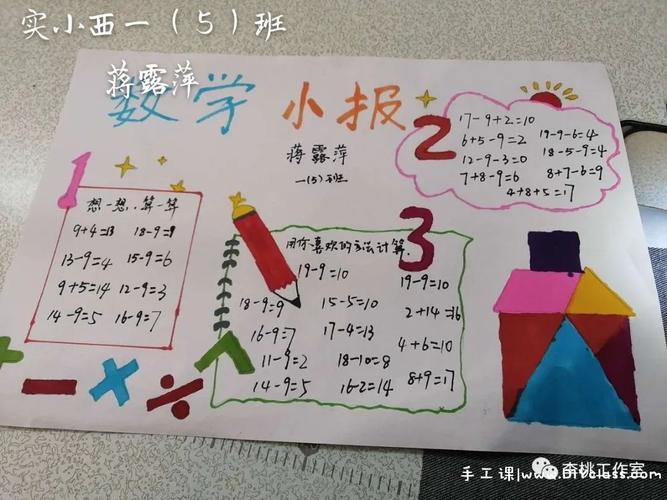 实小西一（5）班
蒋露萍
数学小报
蒋露萍
一(5)班
1
想一想，算一算
9+4=13 18-9=9
13-9=4 15-9=6
9+5=14 12-9=3
14-9=5 16-9=7
2
17-9+2=10
6+5-9=2
12-9-3=0
7+8-9=6
19-9-6=4
18-5-9=4
8+7-6=9
4+8+5=17
3
用你喜欢的方法计算
19-9=10
18-9=9 15-5=10
16-9=7 17-4=13
11-9=2 18-10=8
14-9=5 16-2=14
19-9=10
2+14=16
4+6=10
8+9=17
+ - × ÷
李桃工作室